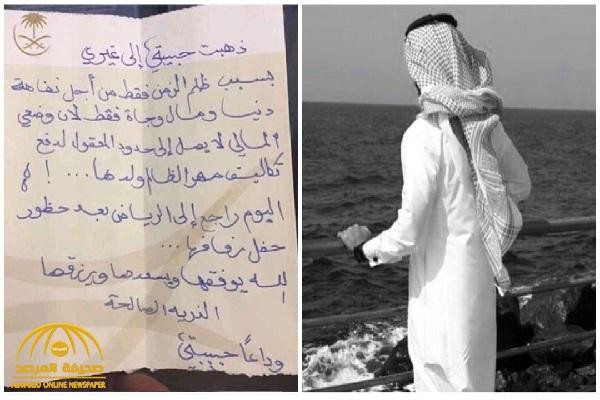 ذهبت حبيبتي إلى غيري
بسبب ظلم الزمن فقط من أجل تفاهة
دنيا ومال وجاة فقط لأن وضعي
المالي لا يصل إلى حدود المعقول لدفع
تكاليف مهر الظالم ولدها... !
اليوم راجع إلى الرياض بعد حظور
حفل زفافها...
الله يوفقها ويسعدها ويرزقها
الذريه الصالحة
وداعاً حبيبتي
صحيفة المرصد
ONLINE NEWSPAPER